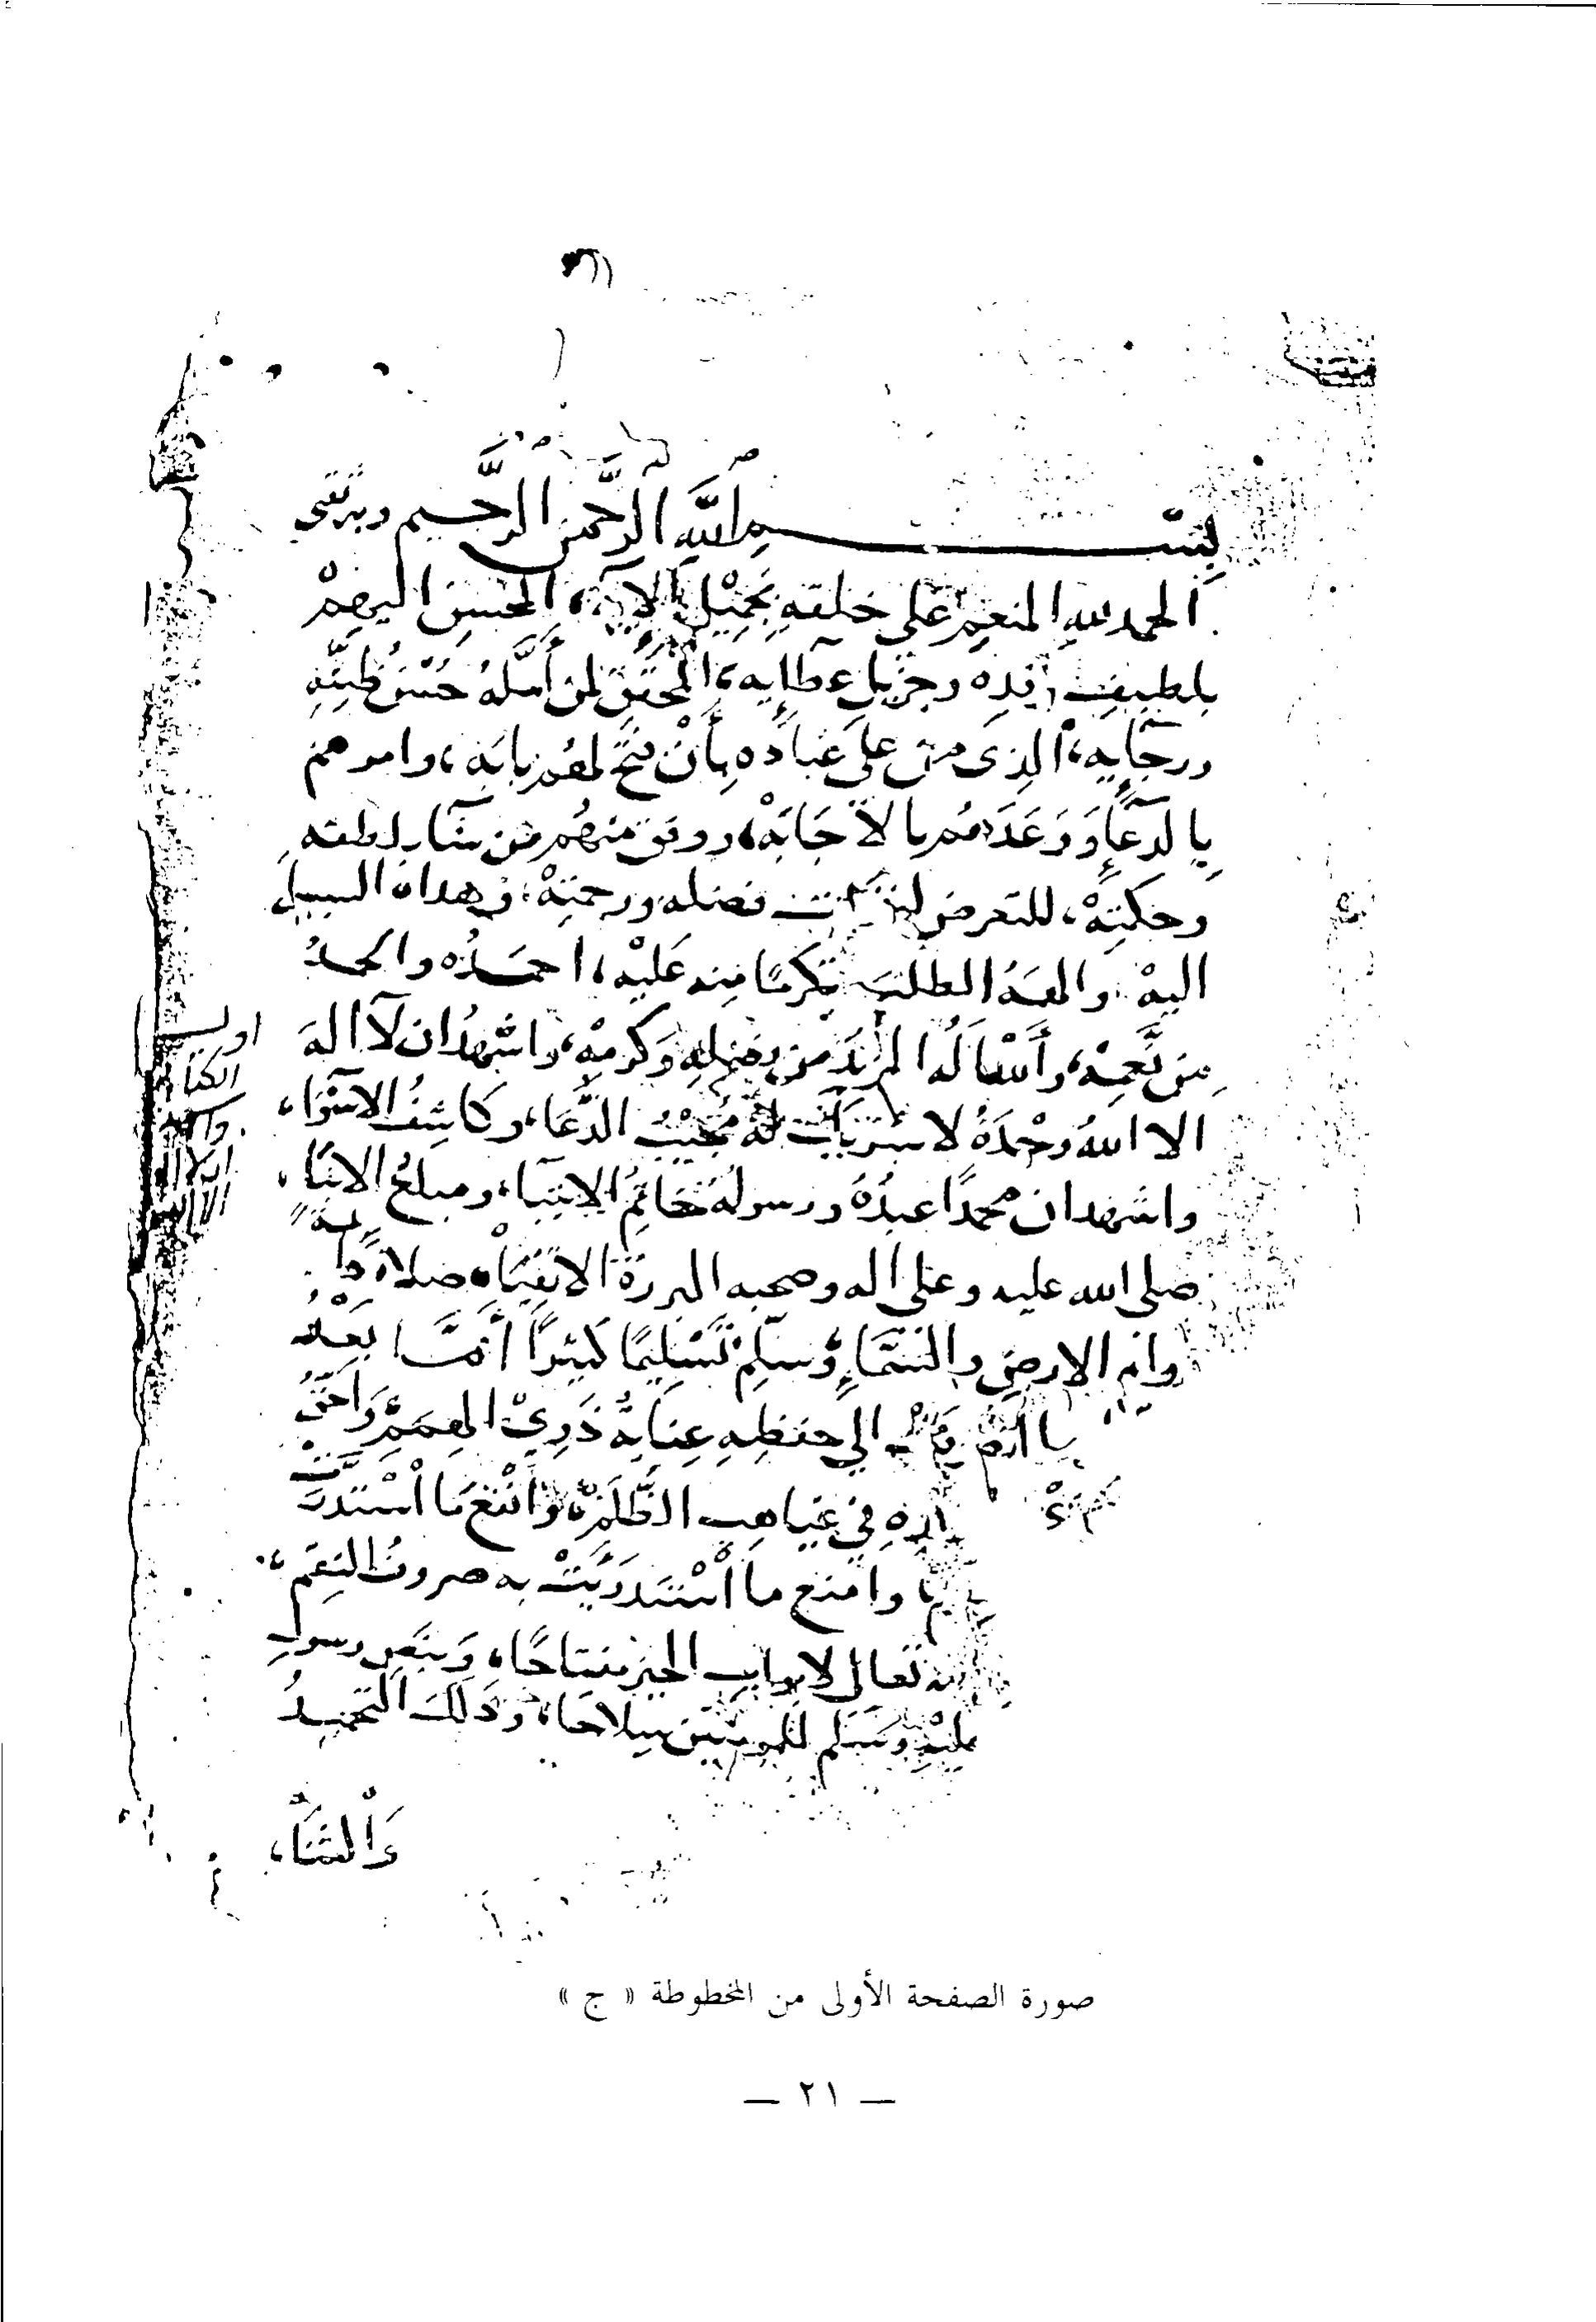 بِسْمِ اللَّهِ الرَّحْمَنِ الرَّحِيمِ وبه ثقتي
الحمد للهِ المنعِم عَلَى خلقهِ بجَمِيْلِ آلآيِهِ، المحْسِن اليهِمْ
بلطيفِ رفدِه وجزيلِ عطآيِه، المحَقِّق لمن أمَّلَهُ حُسْنَ ظَنِّهِ
ورجآيِه، الذي منّ على عَبادِه بِأَنْ فتَحَ لهُم بابَه، وامرهم
بِالدعَآءِ وَوَعَدَهُم بالاجَابَهْ، ووفق منهُم مَن شآ بلطفه
وحكمتِهْ، للتعرض لنفحات فضله ورحمتِهْ، وهداه السبيل
اليهْ والهمَهُ الطلبَ تكرمًا منه عَليْه، احمَدُه والحمدُ
مِن نِّعَمِهْ، وأَسْأَلُه المزيدَ مَن فضلِهِ وَكرمِهْ، واشهدُ ان لآ الهَ
الا اللهُ وحْدَهُ لا شريكَ لهُ مُجيْبُ الدُّعَا، وكاشِفُ الاسْوَا،
واشهد ان محمدًا عبدُهُ ورسولهُ خَاتِمُ الانبيآ، ومبلغُ الانبَا،
صلى الله عليه وعلى اله وصحبه البررة الاتقيَاء صلاةً دايمةً
والارضِ والسَّمَاءِ، وسلّم تَسْلِيمًا كثيرًا أمَّا بعْدُ
الي حفظِهِ عِنايةُ ذَوِيْ الهِمَمِ، وَاحَقُّ
في غياهبِ الظُّلَمِ، وانفَعَ مَا اسْتدرَّتْ
وامنع ما اسْتَدرَيَتْ به صروفُ النِقم،
تعالى لابواب الخير مفتاحًا، وبنَصِ رسول
عليْهِ وسَلم للمومنين سِلاحًا، وذلك التحميدُ
وَالثنَا،
اول
الكتا
صورة الصفحة الأولى من المخطوطة « ج »
— ٢١ —